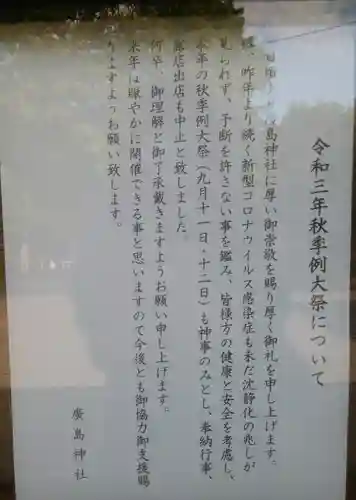 令和三年秋季例大祭について
島神社に厚い御崇敬を賜り厚く御礼を申し上げます。
昨年より続く新型コロナウイルス感染症も未だ沈静化の兆しが
見られず、予断を許さない事を鑑み、皆様方の健康と安全を考慮し、
本年の秋季例大祭（九月十一日・十二日）も神事のみとし、奉納行事、
露店出店も中止と致しました。
何卒、御理解と御了承戴きますようお願い申し上げます。
来年は賑やかに開催できる事と思いますので今後とも御協力御支援賜
りますようお願い致します。
廣島神社